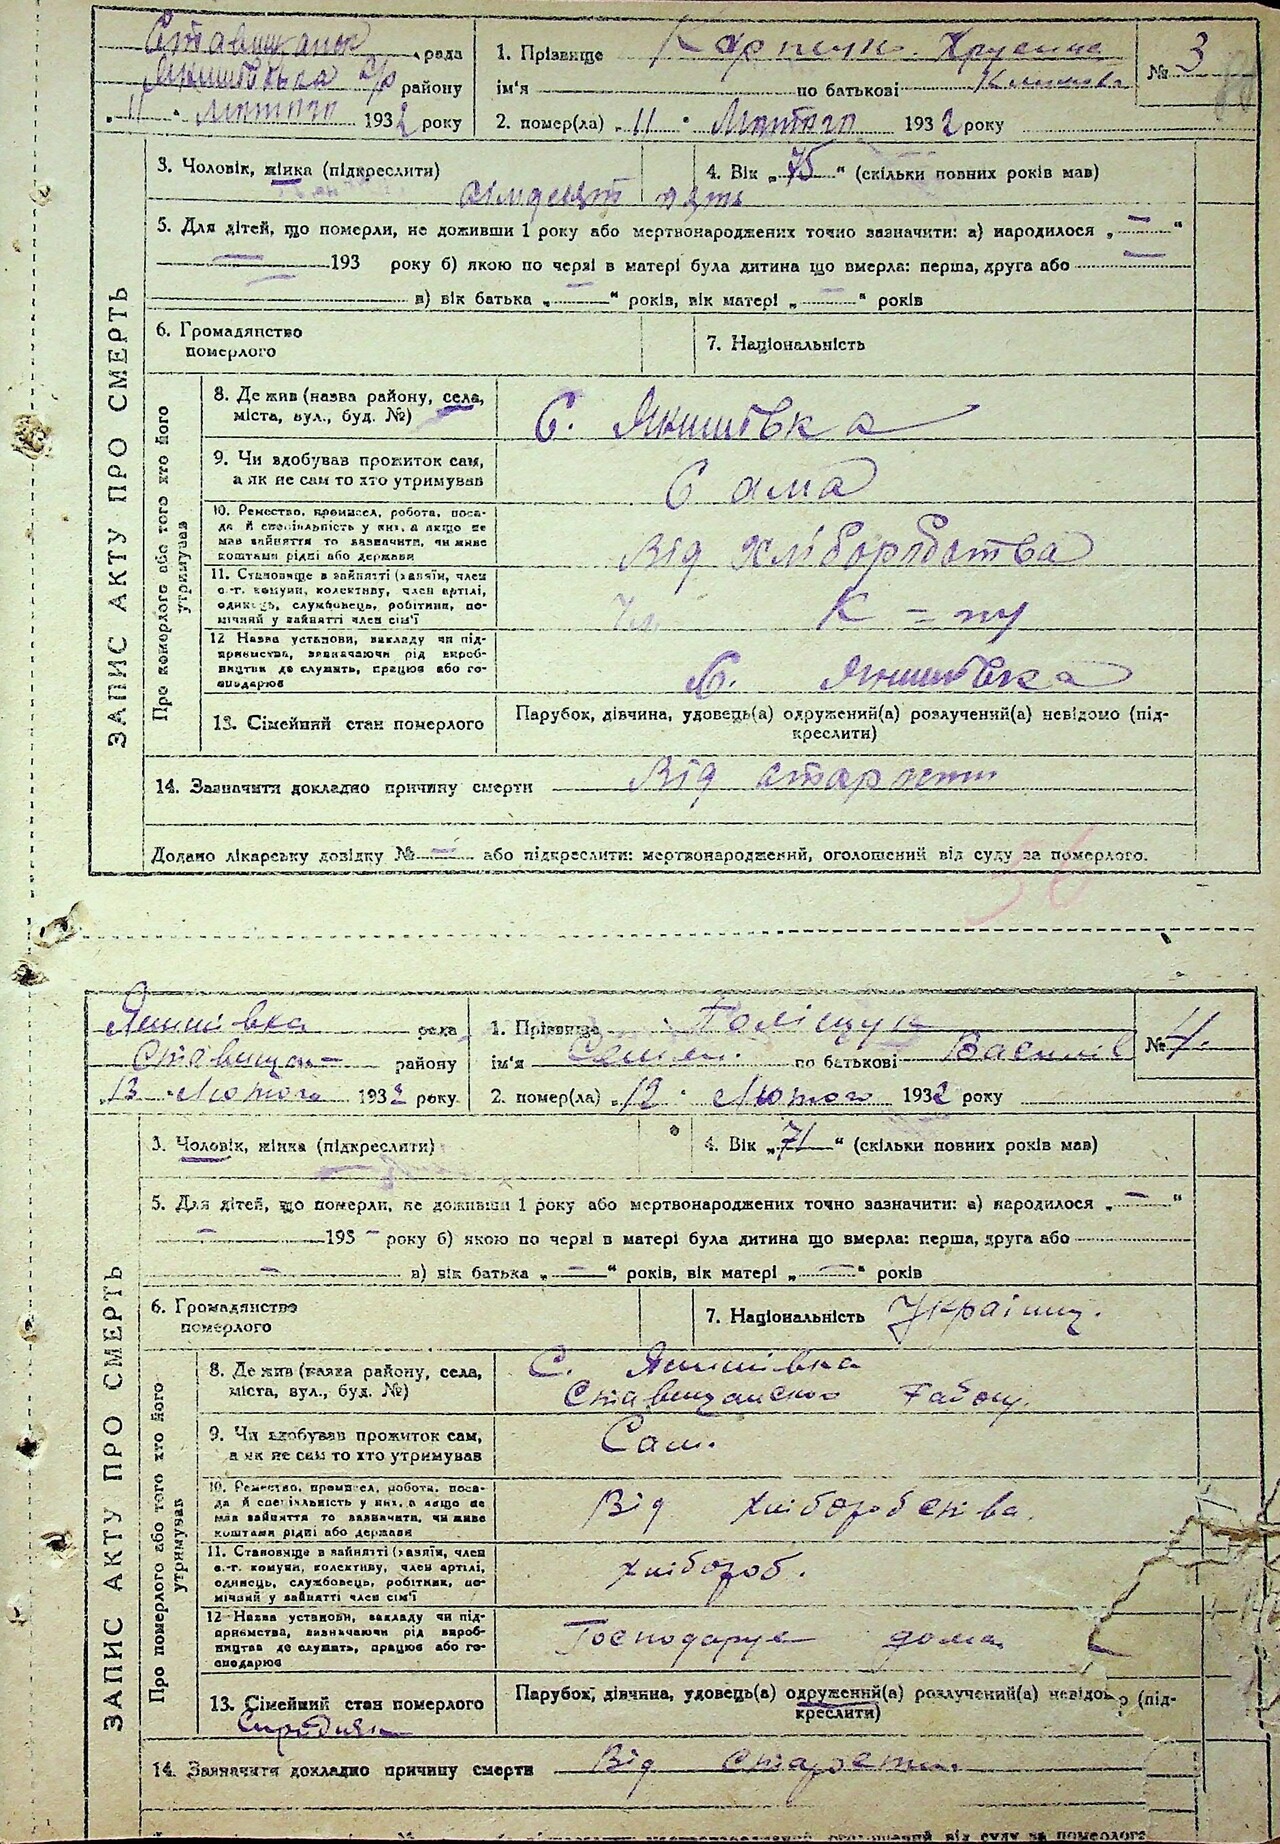 ЗАПИС АКТУ ПРО СМЕРТЬ
рада
району
"11" Лютого 1932 року
1. Прізвище Карпюк
ім'я по батькові
2. помер(ла) "11" Лютого 1932 року
№ 3
3. Чоловік, жінка (підкреслити)
4. Вік "75" (скільки повних років мав)
сімдесят пять
5. Для дітей, що померли, не доживши 1 року або мертвонароджених точно зазначити: а) народилося "—"
— 193 року б) якою по черзі в матері була дитина що вмерла: перша, друга або —
в) вік батька "—" років, вік матері "—" років
6. Громадянство
померлого
7. Національність
Про померлого або того хто його
утримував
8. Де жив (назва району, села,
міста, вул., буд. №)
С. Якишівка
9. Чи здобував прожиток сам,
а як не сам то хто утримував
Сама
10. Ремество, промисел, робота, поса-
да й спеціяльність у них, а якщо не
мав зайняття то зазначити, чи живе
коштами рідні або держави
Від хліборобства
11. Становище в зайнятті (хазяїн, член
с.-г. комуни, колективу, член артілі,
одинець, службовець, робітник, по-
мічний у зайнятті член сім'ї
К=ту
12 Назва установи, закладу чи під-
приємства, зазначаючи рід вироб-
ництва де служить, працює або го-
сподарює
С. Якишівка
13. Сімейний стан померлого
Парубок, дівчина, удовець(а) одружений(а) розлучений(а) невідомо (під-
креслити)
14. Зазначити докладно причину смерти Від старости
Додано лікарську довідку № — або підкреслити: мертвонароджений, оголошений від суду за померлого.
56
ЗАПИС АКТУ ПРО СМЕРТЬ
рада
району
"13" Лютого 1932 року
1. Прізвище Поліщук
ім'я Семен по батькові Василів
2. помер(ла) "12" Лютого 1932 року
№ 4.
3. Чоловік, жінка (підкреслити)
4. Вік "71" (скільки повних років мав)
5. Для дітей, що померли, не доживши 1 року або мертвонароджених точно зазначити: а) народилося "—"
— 193— року б) якою по черзі в матері була дитина що вмерла: перша, друга або
— в) вік батька "—" років, вік матері "—" років
6. Громадянство
померлого
7. Національність Українц.
Про померлого або того хто його
утримував
8. Де жив (назва району, села,
міста, вул., буд. №)
С. Якишівка
Ставищанського Району.
9. Чи здобував прожиток сам,
а як не сам то хто утримував
Сам.
10. Ремество, промисел, робота, поса-
да й спеціяльність у них, а якщо не
мав зайняття то зазначити, чи живе
коштами рідні або держави
Від хліборобства.
11. Становище в зайнятті (хазяїн, член
с.-г. комуни, колективу, член артілі,
одинець, службовець, робітник, по-
мічний у зайнятті член сім'ї
хлібороб.
12 Назва установи, закладу чи під-
приємства, визначаючи рід вироб-
ництва де служить, працює або го-
сподарює
Господарує дома
13. Сімейний стан померлого
Парубок, дівчина, удовець(а) одружений(а) розлучений(а) невідо о (під-
креслити)
14. Зазначити докладно причину смерти Від старости.